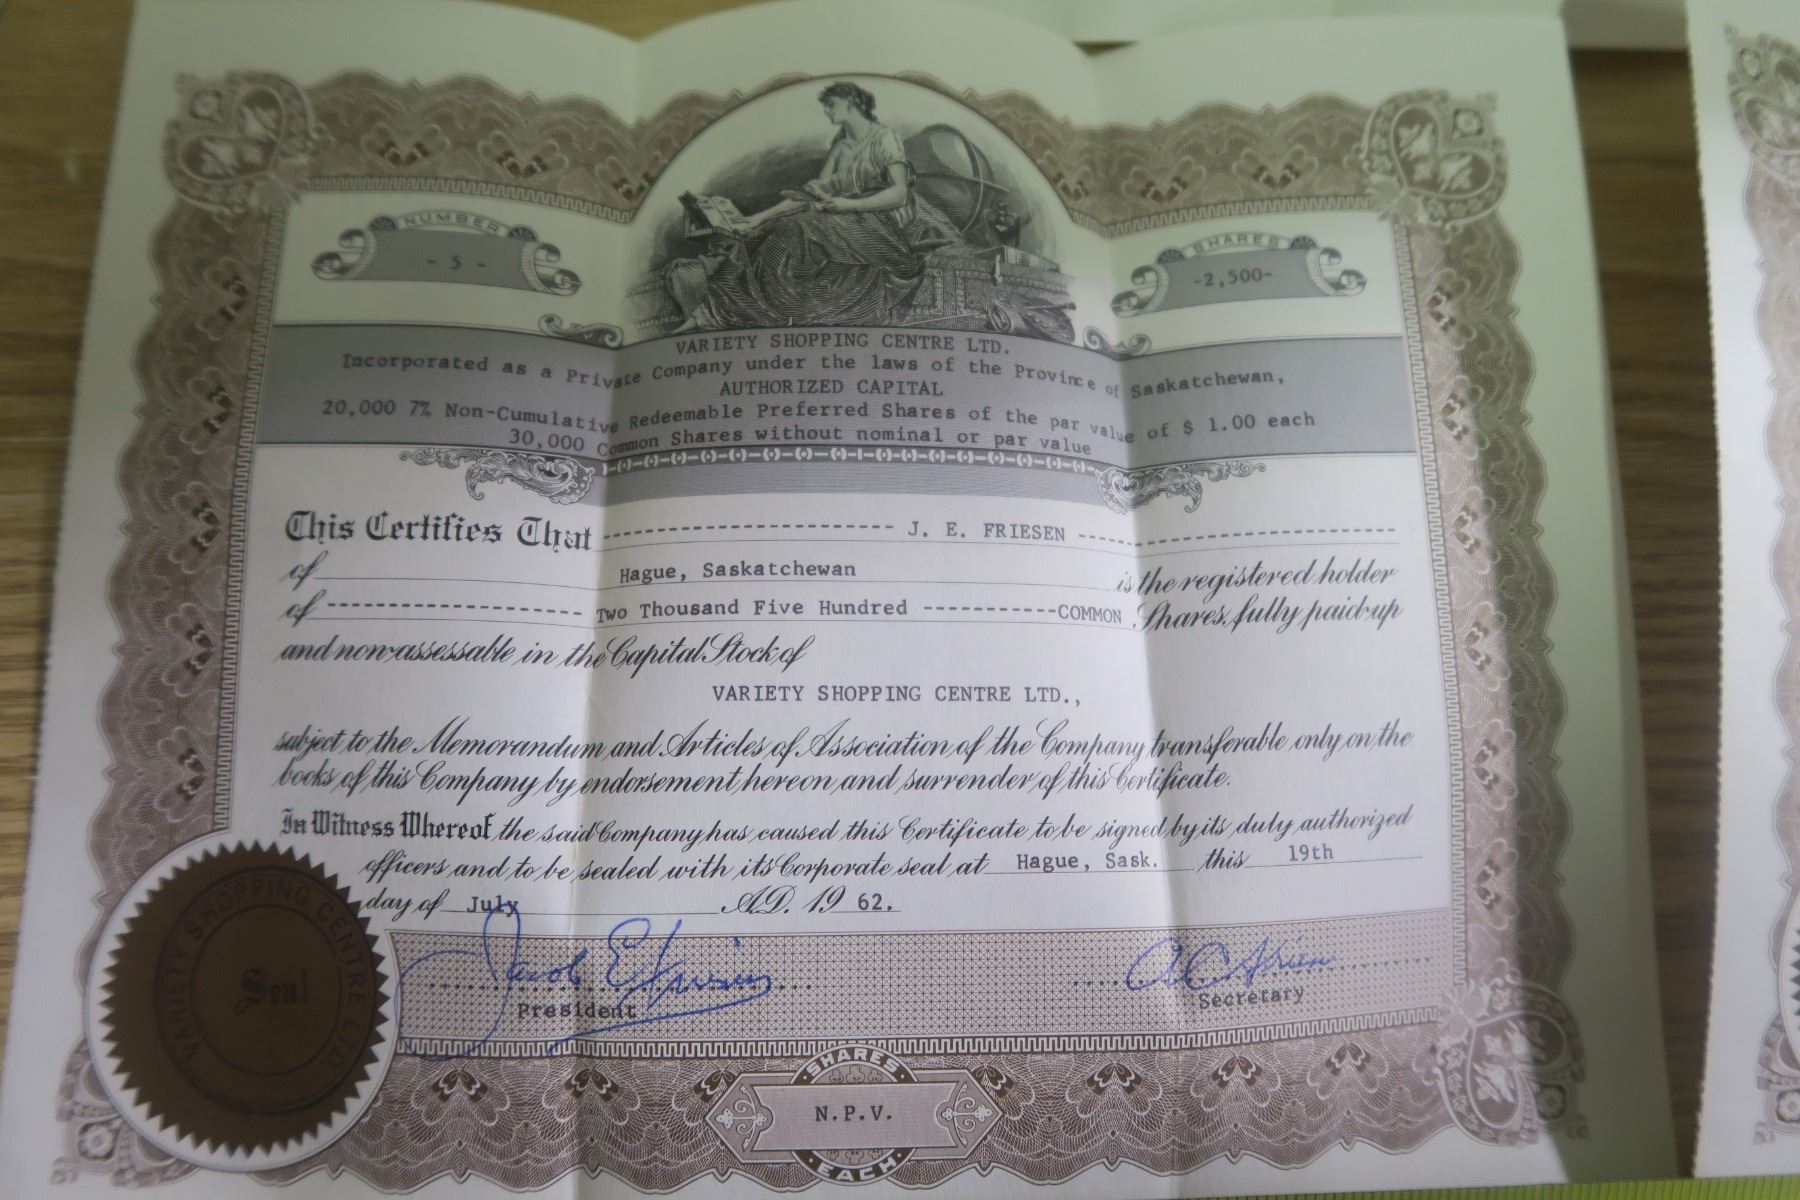 NUMBER
- 5 -
SHARES
-2,500-
VARIETY SHOPPING CENTRE LTD.
Incorporated as a Private Company under the laws of the Province of Saskatchewan,
AUTHORIZED CAPITAL
20,000 7% Non-Cumulative Redeemable Preferred Shares of the par value of $ 1.00 each
30,000 Common Shares without nominal or par value
This Certifies That ---------------------- J. E. FRIESEN ----------------------
of Hague, Saskatchewan is the registered holder
of ------------------- Two Thousand Five Hundred -----------COMMON Shares, fully paid-up
and non-assessable in the Capital Stock of
VARIETY SHOPPING CENTRE LTD.,
subject to the Memorandum and Articles of Association of the Company transferable only on the
books of this Company by endorsement hereon and surrender of this Certificate.
In Witness Whereof the said Company has caused this Certificate to be signed by its duly authorized
officers and to be sealed with its Corporate seal at Hague, Sask. this 19th
day of July A.D. 19 62.
VARIETY SHOPPING CENTRE LTD
Seal
Jacob E Friesen
President
A C
Secretary
SHARES
N.P.V.
EACH